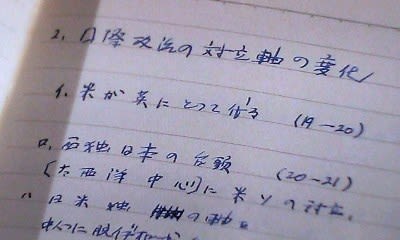 2. 国際政治の対立軸の変化
イ. 米が英にとって代る (19-20)
ロ. 西独日本の台頭 (20-21)
〔大西洋中心〕に米ソの対立.
ハ 日米独 の軸.